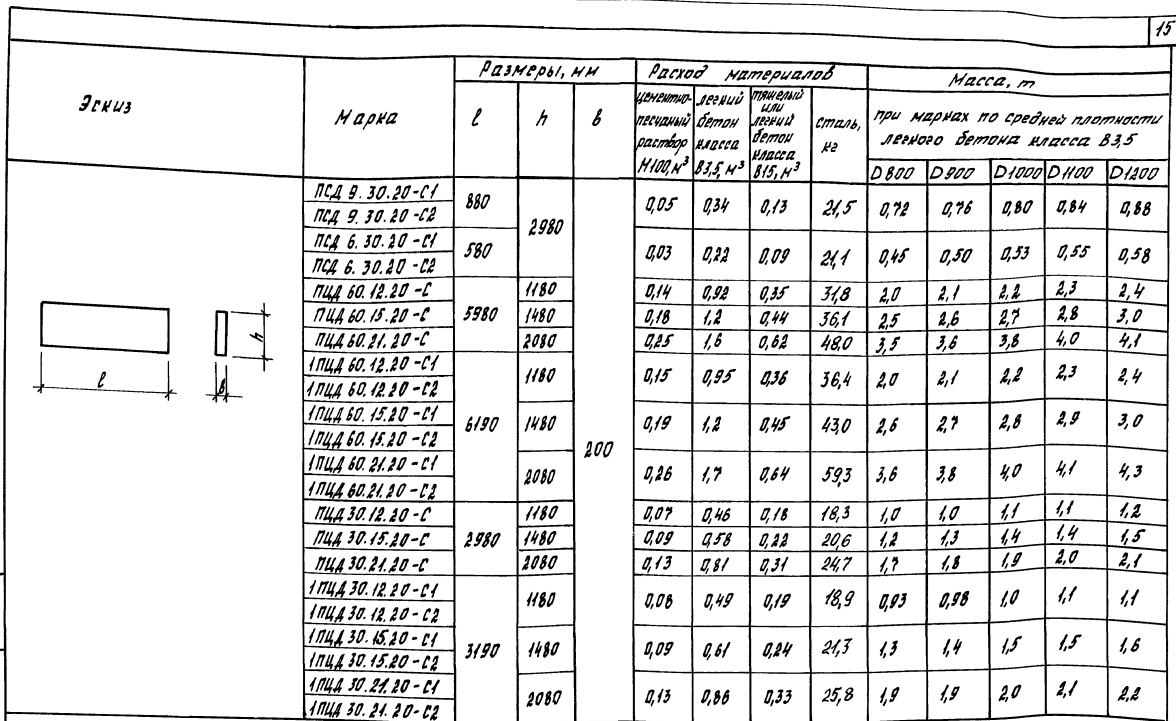 15
Эскиз
Марка
Размеры, мм
Расход материалов
Масса, т
l
h
b
цементно-песчаный раствор М100, м³
легкий бетон класса В3,5, м³
тяжелый или легкий бетон класса В15, м³
сталь, кг
при марках по средней плотности легкого бетона класса В3,5
D800 D900 D1000 D1100 D1200
ПСД 9.30.20-С1 880 2980 200 0,05 0,34 0,13 21,5 0,72 0,76 0,80 0,84 0,88
ПСД 9.30.20-С2
ПСД 6.30.20-С1 580 0,03 0,22 0,09 21,1 0,45 0,50 0,53 0,55 0,58
ПСД 6.30.20-С2
ПЦД 60.12.20-С 5980 1180 0,14 0,92 0,35 31,8 2,0 2,1 2,2 2,3 2,4
ПЦД 60.15.20-С 1480 0,18 1,2 0,44 36,1 2,5 2,6 2,7 2,8 3,0
ПЦД 60.21.20-С 2080 0,25 1,6 0,62 48,0 3,5 3,6 3,8 4,0 4,1
1ПЦД 60.12.20-С1 6190 1180 0,15 0,95 0,36 36,4 2,0 2,1 2,2 2,3 2,4
1ПЦД 60.12.20-С2
1ПЦД 60.15.20-С1 1480 0,19 1,2 0,45 43,0 2,6 2,7 2,8 2,9 3,0
1ПЦД 60.15.20-С2
1ПЦД 60.21.20-С1 2080 0,26 1,7 0,64 59,3 3,6 3,8 4,0 4,1 4,3
1ПЦД 60.21.20-С2
ПЦД 30.12.20-С 2980 1180 0,07 0,46 0,18 18,3 1,0 1,0 1,1 1,1 1,2
ПЦД 30.15.20-С 1480 0,09 0,58 0,22 20,6 1,2 1,3 1,4 1,4 1,5
ПЦД 30.21.20-С 2080 0,13 0,81 0,31 24,7 1,7 1,8 1,9 2,0 2,1
1ПЦД 30.12.20-С1 3190 1180 0,08 0,49 0,19 18,9 0,93 0,98 1,0 1,1 1,1
1ПЦД 30.12.20-С2
1ПЦД 30.15.20-С1 1480 0,09 0,61 0,24 21,3 1,3 1,4 1,5 1,5 1,6
1ПЦД 30.15.20-С2
1ПЦД 30.21.20-С1 2080 0,13 0,86 0,33 25,8 1,9 1,9 2,0 2,1 2,2
1ПЦД 30.21.20-С2
l
b
h